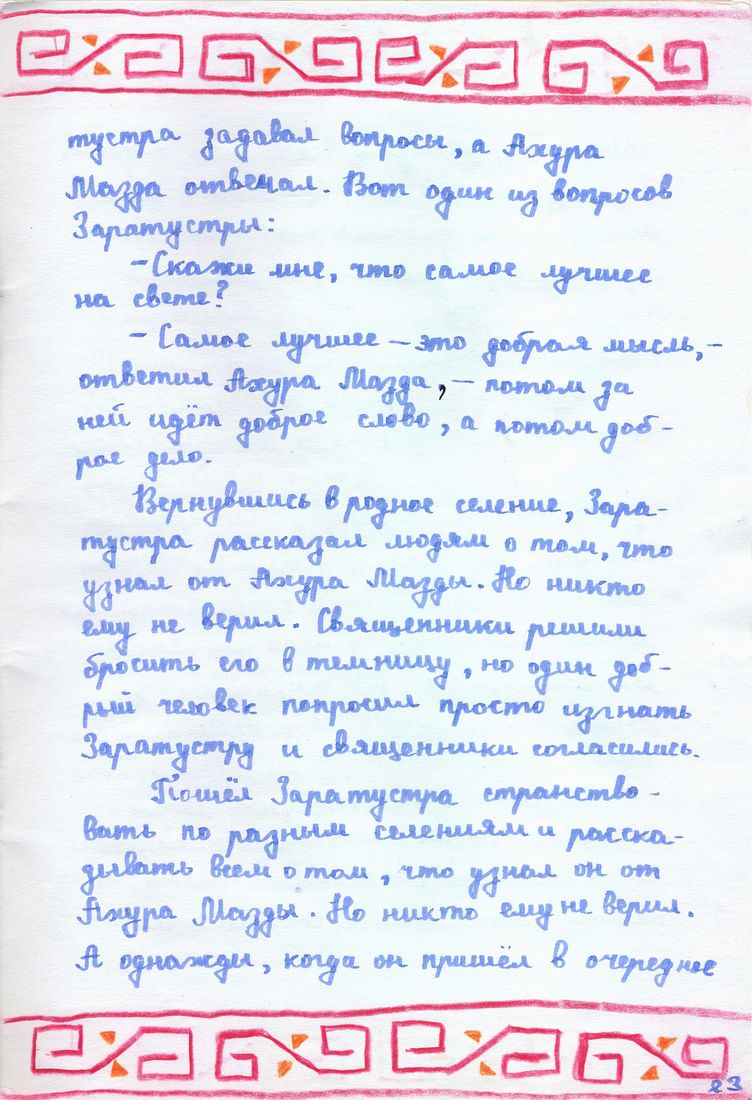 тустра задавал вопросы, а Ахура
Мазда отвечал. Вот один из вопросов
Заратустры:
– Скажи мне, что самое лучшее
на свете?
– Самое лучшее – это добрая мысль, –
ответил Ахура Мазда, – потом за
ней идёт доброе слово, а потом доб-
рое дело.
Вернувшись в родное селение, Зара-
тустра рассказал людям о том, что
узнал от Ахура Мазды. Но никто
ему не верил. Священники решили
бросить его в темницу, но один доб-
рый человек попросил просто изгнать
Заратустру и священники согласились.
Пошёл Заратустра странство-
вать по разным селениям и расска-
зывать всем о том, что узнал он от
Ахура Мазды. Но никто ему не верил.
А однажды, когда он пришёл в очередное
23